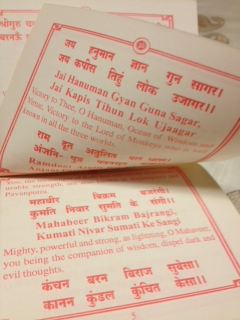 श्रीगुरु
बरनऊँ
जय हनुमान ज्ञान गुन सागर।
जय कपीस तिहुं लोक उजागर।।
Jai Hanuman Gyan Guna Sagar,
Jai Kapis Tihun Lok Ujaagar
Victory to Thee, O Hanuman, Ocean of Wisdom and
Virtue, Victory to the Lord of Monkeys who is
knows in all the three worlds.
राम दूत अतुलित बल धामा।
अंजनि-पुत्र
महाबीर बिक्रम बजरंगी।
कुमति निवार सुमति के संगी।।
Mahabeer Bikram Bajrangi,
Kumati Nivar Sumati Ke Sangi.
Mighty, powerful and strong, as lightning, O Mahaveer,
you being the companion of wisdom, dispel dark and
evil thoughts.
कंचन बरन बिराज सुबेसा।
कानन कुंडल कुंचित केसा।।
5